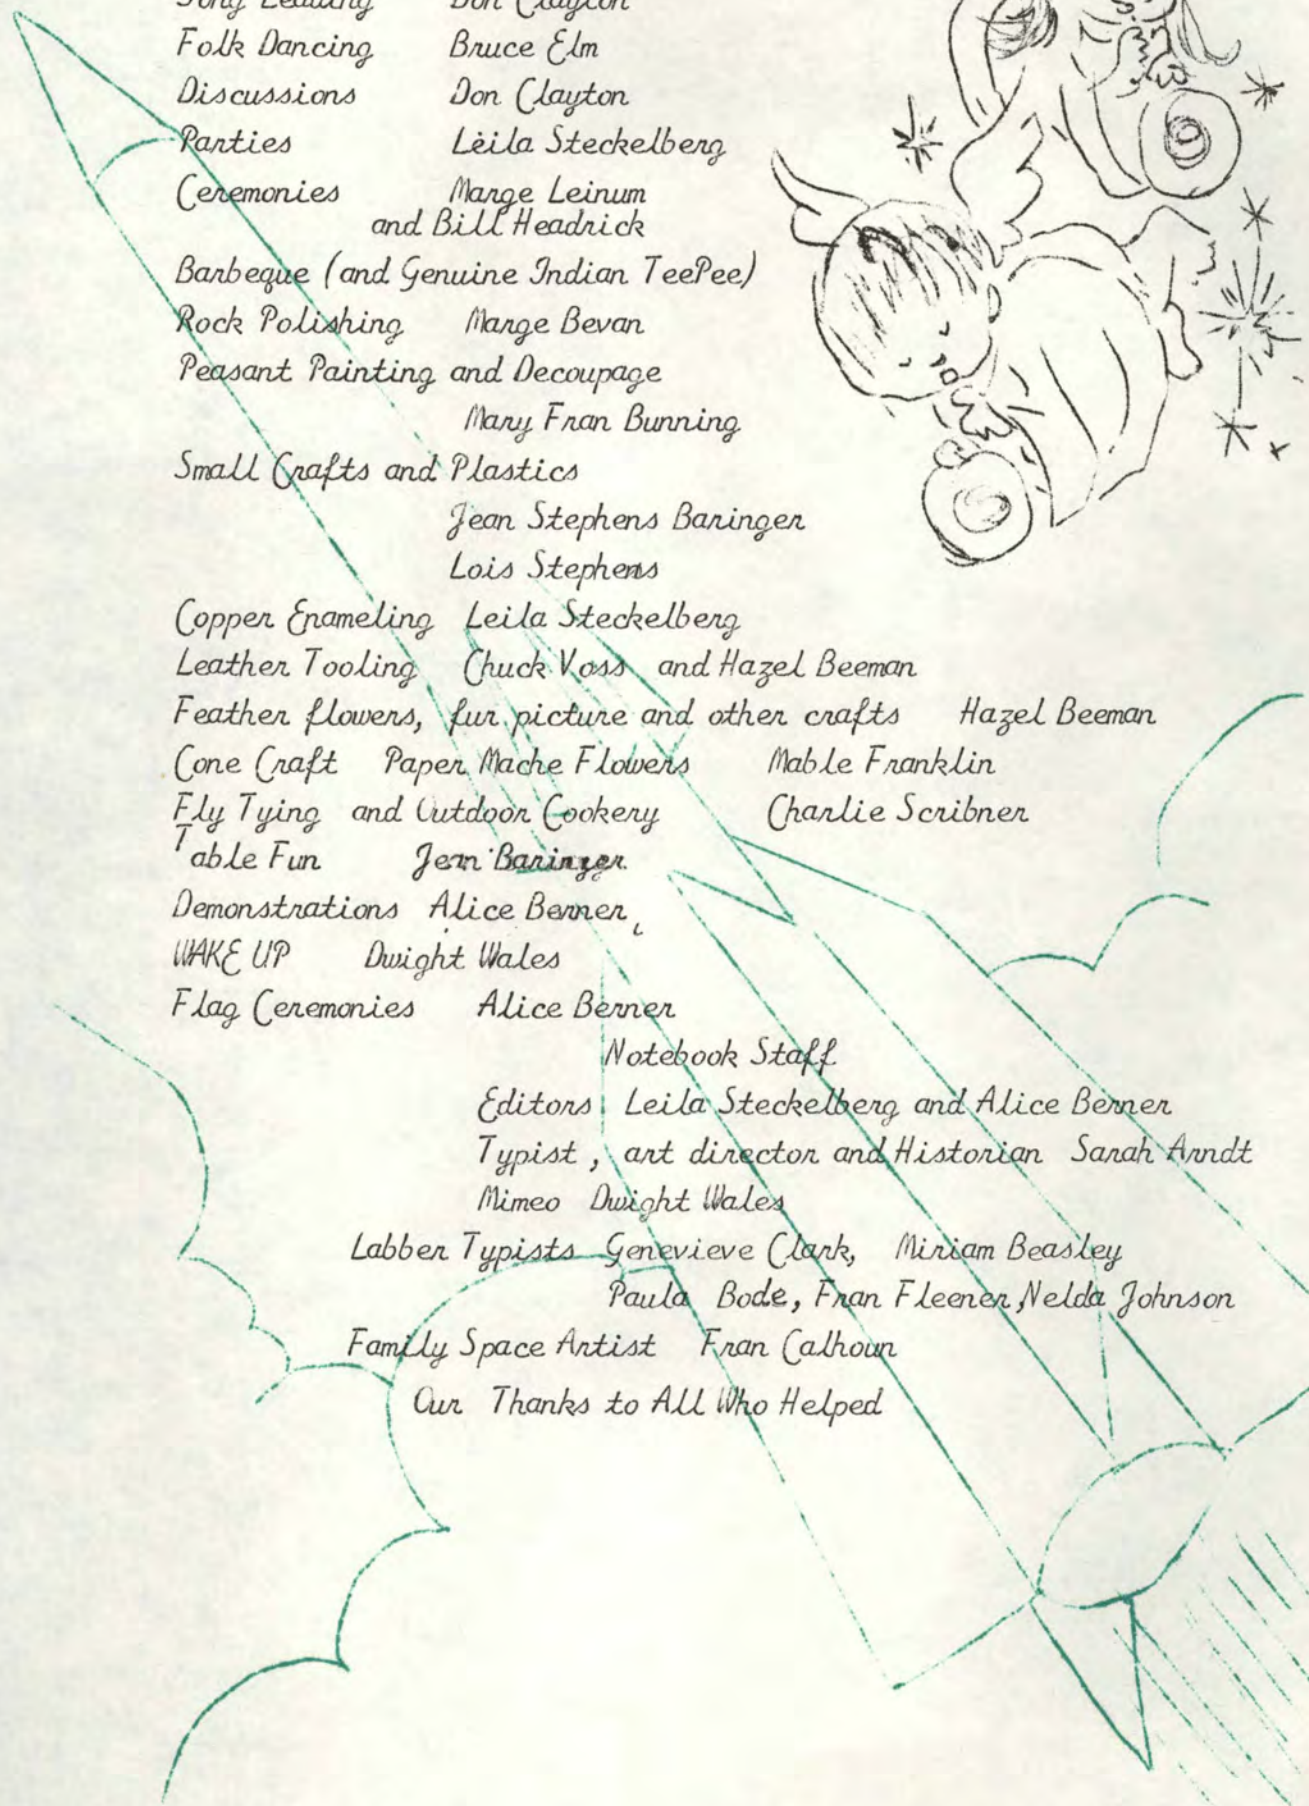 Song Leading Don Clayton
Folk Dancing Bruce Elm
Discussions Don Clayton
Parties Leila Steckelberg
Ceremonies Marge Leinum
and Bill Headrick
Barbeque (and Genuine Indian TeePee)
Rock Polishing Marge Bevan
Peasant Painting and Decoupage
Mary Fran Bunning
Small Crafts and Plastics
Jean Stephens Baringer
Lois Stephens
Copper Enameling Leila Steckelberg
Leather Tooling Chuck Voss and Hazel Beeman
Feather flowers, fur picture and other crafts Hazel Beeman
Cone Craft Paper Mache Flowers Mable Franklin
Fly Tying and Outdoor Cookery Charlie Scribner
Table Fun Jean Baringer
Demonstrations Alice Berner
WAKE UP Dwight Wales
Flag Ceremonies Alice Berner
Notebook Staff
Editors Leila Steckelberg and Alice Berner
Typist, art director and Historian Sarah Arndt
Mimeo Dwight Wales
Labber Typists Genevieve Clark, Miriam Beasley
Paula Bode, Fran Fleener, Nelda Johnson
Family Space Artist Fran Calhoun
Our Thanks to All Who Helped